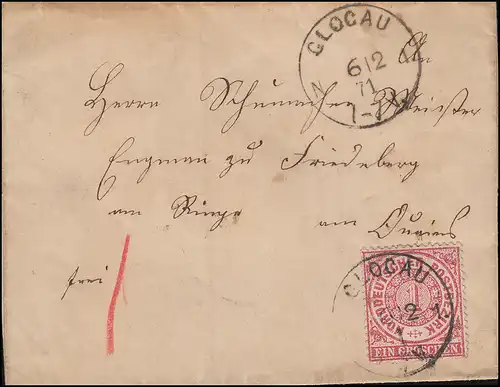 GLOGAU
6/2
71
N
An
Herrn Schumacher Meister
Engman zu Friedeberg
am Ringe am Queis
frei
GLOGAU
2
NORDDEUTSCHER POSTBEZIRK
1
EIN GROSCHEN